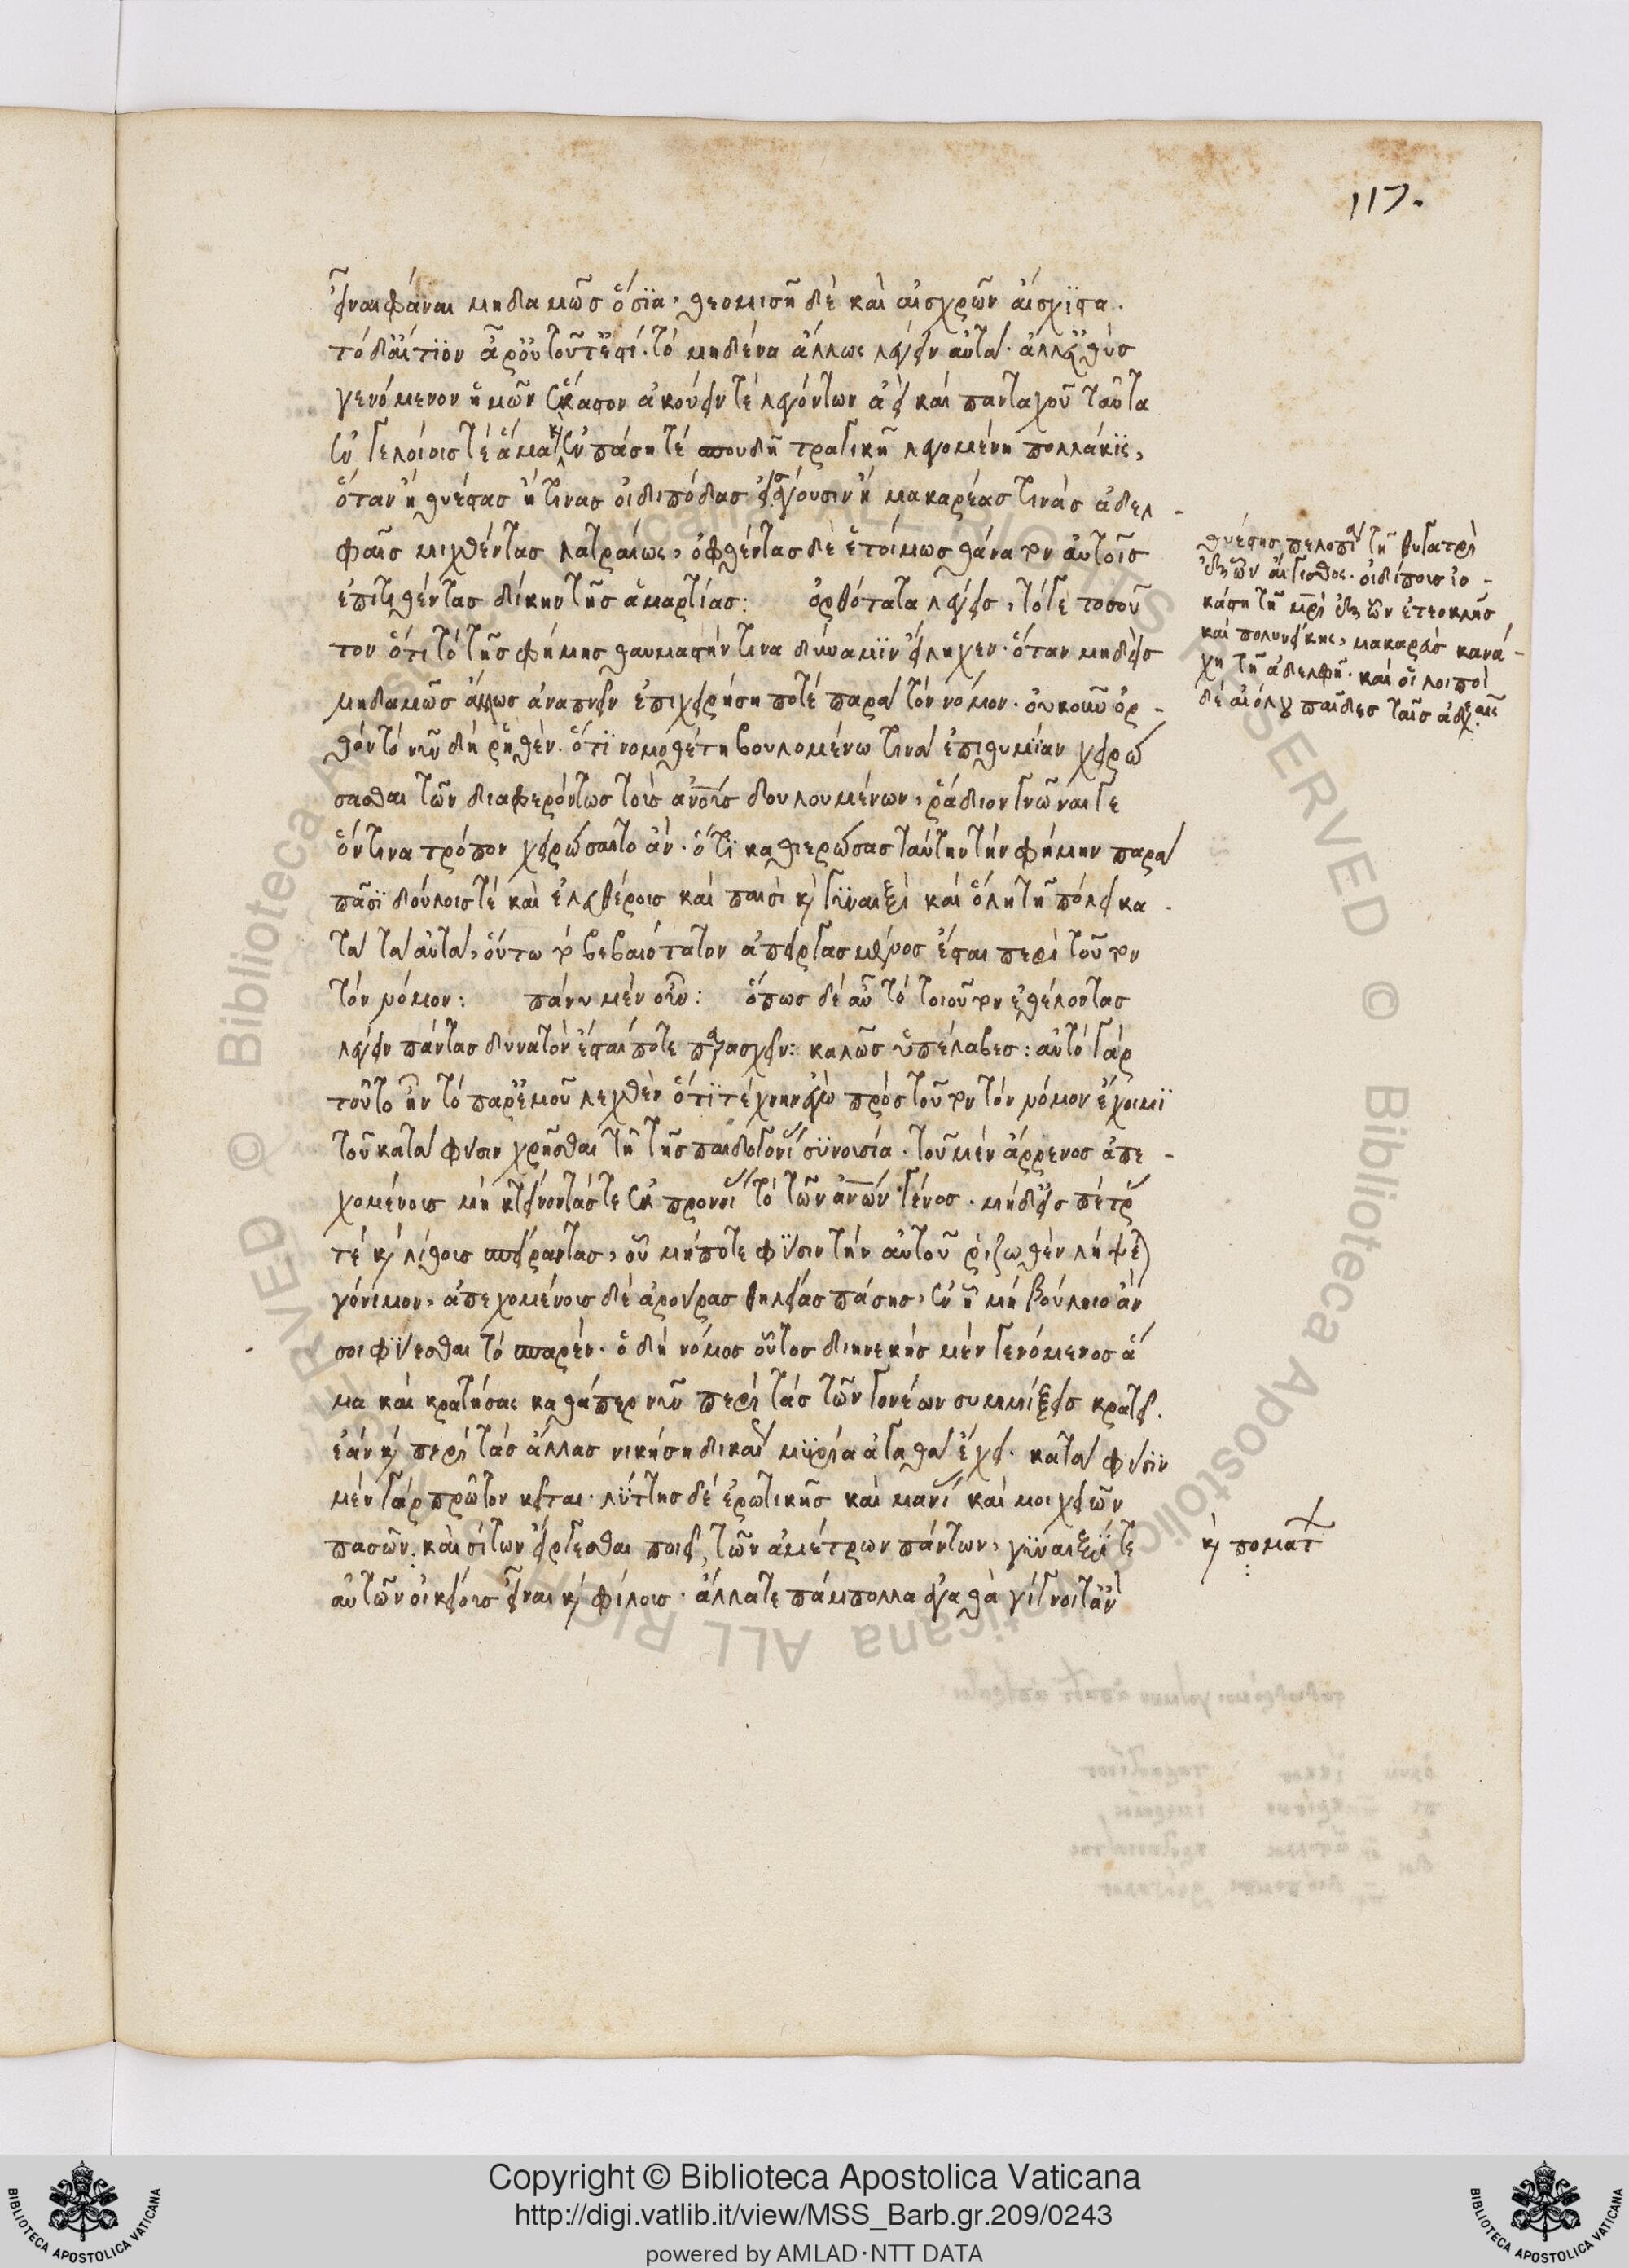 117.
εἶναι φάναι μηδαμῶσ ὅσϊα, θεομισῆ δὲ καὶ αἰσχρῶν αἴσχϊστα.
τὸ δ' αἴτϊον ἆρ' οὐ τοῦτ' ἐστί. τὸ μηδένα ἄλλως λέγειν αὐτά. ἀλλ' εὐθὺσ
γενόμενον ἡμῶν ἕκαστον ἀκούειν τὲ λεγόντων ἀεὶ καὶ πανταχοῦ ταῦτα
ἐν γελοίοισ τὲ ἅμα κ ἐν πάσῃ τὲ σπουδῆ τραγικῆ λεγομένη πολλάκϊς,
ὅταν ἢ θυέστασ ἤ τινασ οἰδιπόδασ εἰσάγουσιν ἢ μακαρέασ τινὰσ ἀδελ-
φαῖσ μιχθέντασ λατραίως, ὀφθέντασ δὲ ἑτοίμωσ θάνατον αὐτοῖσ
ἐπιτιθέντασ δίκην τῆσ ἁμαρτίασ: ὀρθότατα λέγεισ, τό γε τοσοῦ
τον ὅτι τὸ τῆσ φήμησ θαυμαστήν τινα δύναμϊν εἴληχεν. ὅταν μηδεὶσ
μηδαμῶσ ἄλλωσ ἀναπνεῖν ἐπιχειρήσῃ ποτὲ παρὰ τὸν νόμον. οὐκοῦν ὀρ-
θὸν τὸ νῦν δὴ ῥηθέν. ὅτϊ νομοθέτη βουλομένω τινὰ ἐπιθυμίαν χειρώ
σασθαι τῶν διαφερόντωσ τοὺσ ανοῦσ δουλουμένων, ῥάδιον γνῶναι γε
ὅντινα τρόπον χειρώσαιτο ἄν. ὅτϊ καθιερώσασ ταύτην τὴν φήμην παρὰ
πᾶσϊ δούλοισ τὲ καὶ ἐλευθέροισ καὶ παισὶ κ γυναιξὶ καὶ ὅλη τῆ πόλει κα-
τὰ τὰ αὐτά, οὕτω τὸ βεβαιότατον ἀπειργασμένοσ ἔσται περὶ τοῦτον
τὸν νόμον: πάνυ μὲν οὖν: ὅπωσ δὲ αὖ τὸ τοιοῦτον ἐθέλοντασ
λέγειν πάντασ δυνατὸν ἔσται ποτε παρασχεῖν: καλῶσ ὑπέλαβεσ: αὐτὸ γὰρ
τοῦτο ἦν τὸ παρ' ἐμοῦ λεχθὲν ὅτϊ τέχνην ἐγὼ πρὸσ τοῦτον τὸν νόμον ἔχοιμϊ
τοῦ κατὰ φύσιν χρῆσθαι τῆ τῆσ παιδογονί συνουσία. τοῦ μὲν ἄρρενοσ ἀπε-
χομένουσ μὴ κτείνοντάσ τε ἐκ προνοί τὸ τῶν ἀνών γένοσ. μήδ' εἰσ πέτρ
τὲ κ λίθουσ σπείροντασ, οὗ μήποτε φύσιν τὴν αὐτοῦ ῥιζωθὲν λήψε
γόνιμον, ἀπεχομένουσ δὲ ἀρούρασ θηλείασ πάσησ, ἐν ἧ μὴ βούλοιο ἄν
σοι φύεσθαι τὸ σπαρέν. ὁ δὴ νόμοσ οὗτοσ διηνεκὴσ μὲν γενόμενοσ ἅ
μα καὶ κρατήσας καθάπερ νῦν περὶ τὰσ τῶν γονέων συμμίξεισ κρατεῖ.
ἐὰν κ περὶ τὰσ ἄλλασ νικήσῃ δικαί μϋρία ἀγαθὰ ἔχει. κατὰ φύσϊν
μὲν γὰρ πρῶτον κεῖται. λύττησ δὲ ἐρωτικῆσ καὶ μανί καὶ μοιχειῶν
πασῶν: καὶ σίτων εἴργεσθαι ποιεῖ, τῶν ἀμέτρων πάντων, γυναιξί τε
αὐτῶν οἰκείουσ εἶναι κ φίλουσ. ἄλλα τε πάμπολλα ἀγαθὰ γίγνοιτ' ἂν
θυέστησ πελοπί τῆ θυγατρὶ
ἐξ ὧν αἴγισθος. οἰδίπουσ ἰο-
κάστη τῆ μρὶ ἐξ ὧν ἐτεοκλῆσ
καὶ πολυνείκης, μακαρεὺσ κανά-
χη τῆ ἀδελφῆ. καὶ οἱ λοιποὶ
δὲ αἰόλου παῖδεσ ταῖσ ἀδελφαῖς
κ πομάτ
Copyright © Biblioteca Apostolica Vaticana
http://digi.vatlib.it/view/MSS_Barb.gr.209/0243
powered by AMLAD·NTT DATA
BIBLIOTECA APOSTOLICA VATICANA
BIBLIOTECA APOSTOLICA VATICANA